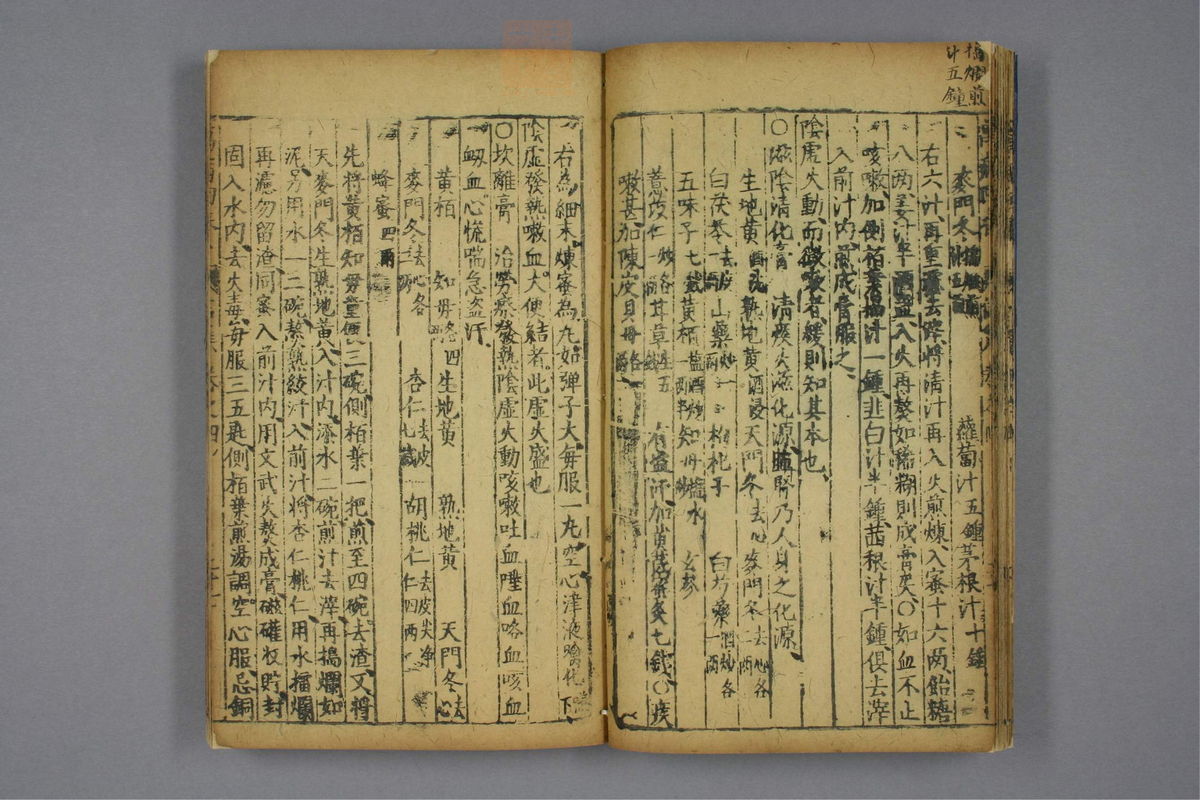 搗爛煎
汁五鐘
麥門冬
蘿蔔汁五鐘茅根汁十鐘
右六汁再重去滓將清汁再入火煎煉入蜜十六兩飴糖
八兩姜汁半入火再熬如稀糊則成膏矣〇如血不止
咳嗽加側栢葉搗汁一鍾韭白汁半鍾茜根汁半鍾俱去滓
入前汁內煎成膏服之
陰虛火動而嗽者緩則知其本也
〇滋陰清化膏 清痰火滋化源肺腎乃人身之化源
生地黃酒洗熟地黃酒浸天門冬去心麥門冬去心各二兩
白茯苓去皮一兩山藥炒一兩枸杞子 白芍藥酒炒各一兩
五味子七錢黃栢鹽酒炒一兩半知母鹽水炒 玄參
薏苡仁炒各一兩甘草生五錢 有盛汗加黃茋蜜炙七錢〇痰
嗽甚加陳皮貝母各一兩
右為細末煉蜜為丸如彈子大每服一丸空心津液噙化下
陰虛發熱嗽血大便結者此虛火盛也
〇坎離膏 治勞瘵發熱陰虛火動咳嗽吐血唾血咯血咳血
衂血心慌喘急盜汗
黃栢 知母各四 生地黃 熟地黃 天門冬去心
麥門冬去心各 杏仁去皮七錢 胡桃仁去皮尖淨仁四兩
蜂蜜四兩
先將黃栢知母童便三碗側栢葉一把煎至四碗去渣又將
天麥門冬生熟地黃入汁內添水二碗煎汁去滓再搗爛如
泥另用水一二碗熬熟絞汁入前汁將杏仁桃仁用水擂爛
再濾勿留渣同蜜入前汁內用文武火熬成膏磁礶收貯封
固入水內去火毒每服三五匙側栢葉煎湯調空心服忌銅